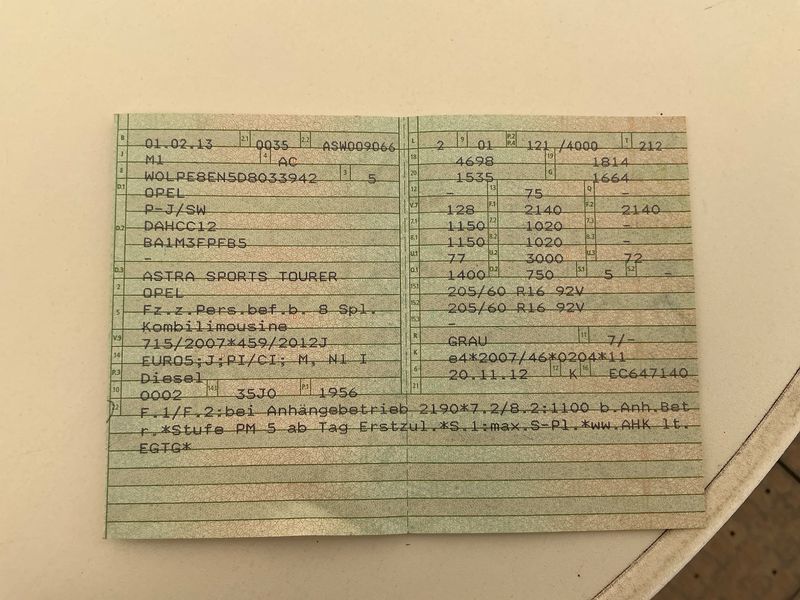 B 01.02.13 2.1 0035 2.2 ASW009066
J M1 4 AC
E W0LPE8EN5D8033942 3 5
D.1 OPEL
P-J/SW
D.2 DAHCC12
BA1M3FPFB5
-
D.3 ASTRA SPORTS TOURER
2 OPEL
5 Fz.z.Pers.bef.b. 8 Spl.
Kombilimousine
V.9 715/2007*459/2012J
14 EURO5;J;PI/CI; M, N1 I
P.3 Diesel
10 0002 14.1 35J0 P.1 1956
L 2 9 01 P.2 P.4 121 /4000 T 212
18 4698 19 1814
20 1535 G 1664
12 - 13 75 Q -
V.7 128 F.1 2140 F.2 2140
7.1 1150 7.2 1020 7.3 -
8.1 1150 8.2 1020 8.3 -
U.1 77 U.2 3000 U.3 72
O.1 1400 O.2 750 S.1 5 S.2 -
15.1 205/60 R16 92V
15.2 205/60 R16 92V
15.3 -
R GRAU 11 7/-
K e4*2007/46*0204*11
6 20.11.12 17 K 16 EC647140
21
22 F.1/F.2:bei Anhängebetrieb 2190*7.2/8.2:1100 b.Anh.Bet
r.*Stufe PM 5 ab Tag Erstzul.*S.1:max.S-Pl.*ww.AHK lt.
EGTG*